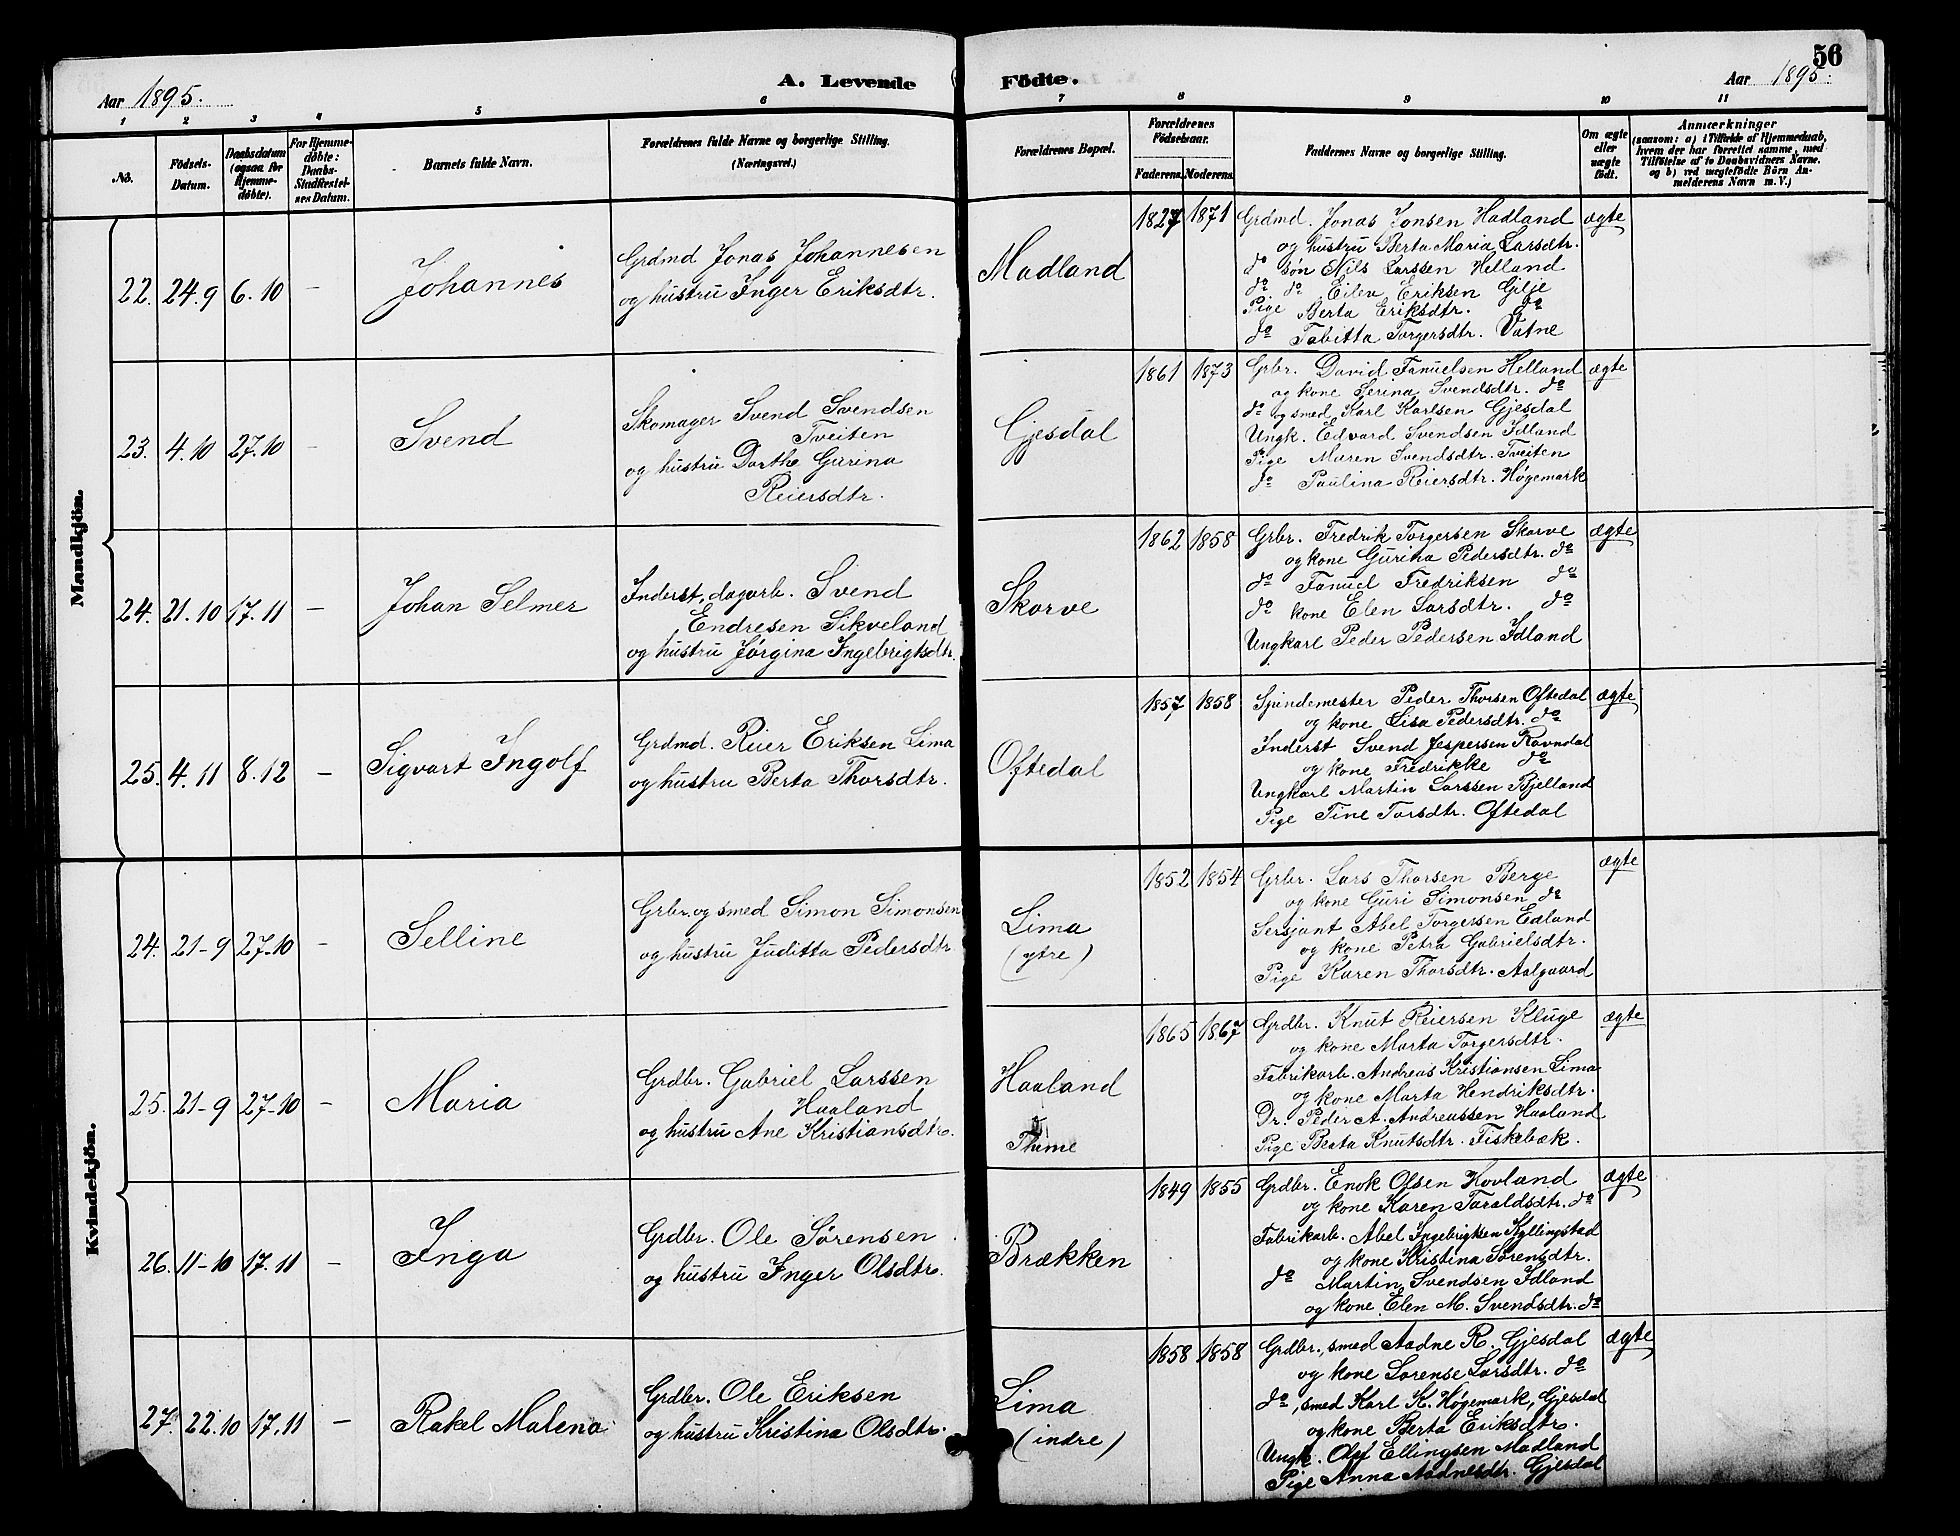 56
Aar 1895.
A. Levende Födte.
Aar 1895.
1 2 3 4 5 6 7 8 9 10 11
No.
Födsels-
Datum.
Daabsdatum
(ogsaa for
Hjemme-
döbte).
For Hjemme-
döbte:
Daabs-
Stadfæstel-
ses Datum.
Barnets fulde Navn.
Forældrenes fulde Navne og borgerlige Stilling.
(Næringsvei.)
Forældrenes Bopæl.
Forældrenes
Födselsaar.
Faderens. Moderens.
Faddernes Navne og borgerlige Stilling.
Om ægte
eller
uægte
födt.
Anmærkninger
(saasom: a) i Tilfælde af Hjemmedaab,
hvem der har forrettet samme, med
Tilföielse af to Daabsvidners Navne.
og b) ved uægtefödte Börn An-
melderens Navn m. V.)
Mandkjön.
22. 24.9 6.10 — Johannes
Grdmd Jonas Johannesen
og hustru Inger Eriksdtr.
Madland
1827 1871
Grdmd. Jonas Jonsen Hadland
og hustru Berta Maria Larsdtr.
do søn Nils Larssen Helland
do do Eilev Eriksen Gilje
Pige Berta Eriksdtr. do
do Tabitta Torgersdtr. Vatne
ægte
23. 4.10 27.10 — Svend
Skomager Svend Svendsen
Tveiten
og hustru Dorthe Gurina
Reiersdtr.
Gjesdal
1861 1873
Grbr. David Fanuelsen Helland
og kone Serina Svendsdtr. do
do og smed Karl Karlsen Gjesdal
Ungk. Edvard Svendsen Idland
Pige Maren Svendsdtr. Tveiten
do Paulina Reiersdtr. Høgemark
ægte
24. 21.10 17.11 — Johan Selmer
Inderst, dagarb. Svend
Endresen Sikveland
og hustru Jørgina Ingebrigtsdtr.
Skorve
1862 1858
Grbr. Fredrik Torgersen Skorve
og kone Gurina Pedersdtr. do
do Fanuel Fredriksen do
do kone Elen Larsdtr. do
Ungkarl Peder Pedersen Idland
ægte
25. 4.11 8.12 — Sigvart Ingolf
Grdmd. Reier Eriksen Lima
og hustru Berta Thorsdtr.
Oftedal
1857 1858
Spindemester Peder Thorsen Oftedal
og kone Lisa Pedersdtr. do
Inderst Svend Jespersen Ravndal
og kone Fredrikke do
Ungkarl Martin Larssen Bjelland
Pige Tine Torsdtr. Oftedal
ægte
Kvindekjön.
24. 21-9 27-10 — Selline
Grbr. og smed Simon Simonsen
og hustru Juditta Pedersdtr.
Lima
(ytre)
1852 1854
Grbr. Lars Thorsen Berge
og kone Guri Simonsen do
Sersjant Abel Torgersen Edland
og kone Petra Gabrielsdtr.
Pige Karen Thorsdtr. Aalgaard
ægte
25. 21-9 27-10 — Maria
Grdbr. Gabriel Larssen
Haaland
og hustru Ane Kristiansdtr.
Haaland
i
Thime
1865 1867
Grdbr. Knut Reiersen Kluge
og kone Marta Torgersdtr.
Fabrikarb. Andreas Kristiansen Lima
og kone Marta Hendriksdtr.
Dr. Peder A. Andreassen Haaland
Pige Berta Knutsdtr. Fiskebæk.
ægte
26. 11-10 17.11 — Inga
Grdbr. Ole Sørensen
og hustru Inger Olsdtr.
Brækken
1849 1855
Grdbr. Enok Olsen Hovland
og kone Karen Taraldsdtr. do
Fabrikarb. Abel Ingebrigtsen Kyllingstad
og kone Kristina Sørensdtr.
do Martin Svendsen Idland
og kone Elen M. Svendsdtr. do
ægte
27. 22.10 17.11 — Rakel Malena
Grdbr. Ole Eriksen
og hustru Kristina Olsdtr.
Lima
(indre)
1858 1858
Grdbr., smed Aadne R. Gjesdal
og kone Sorense Larsdtr. do
do, smed Karl K. Høgemark, Gjesdal
og kone Berta Eriksdtr.
Ungk. Olaf Ellingsen Madland
Pige Anna Aadnesdtr. Gjesdal
ægte